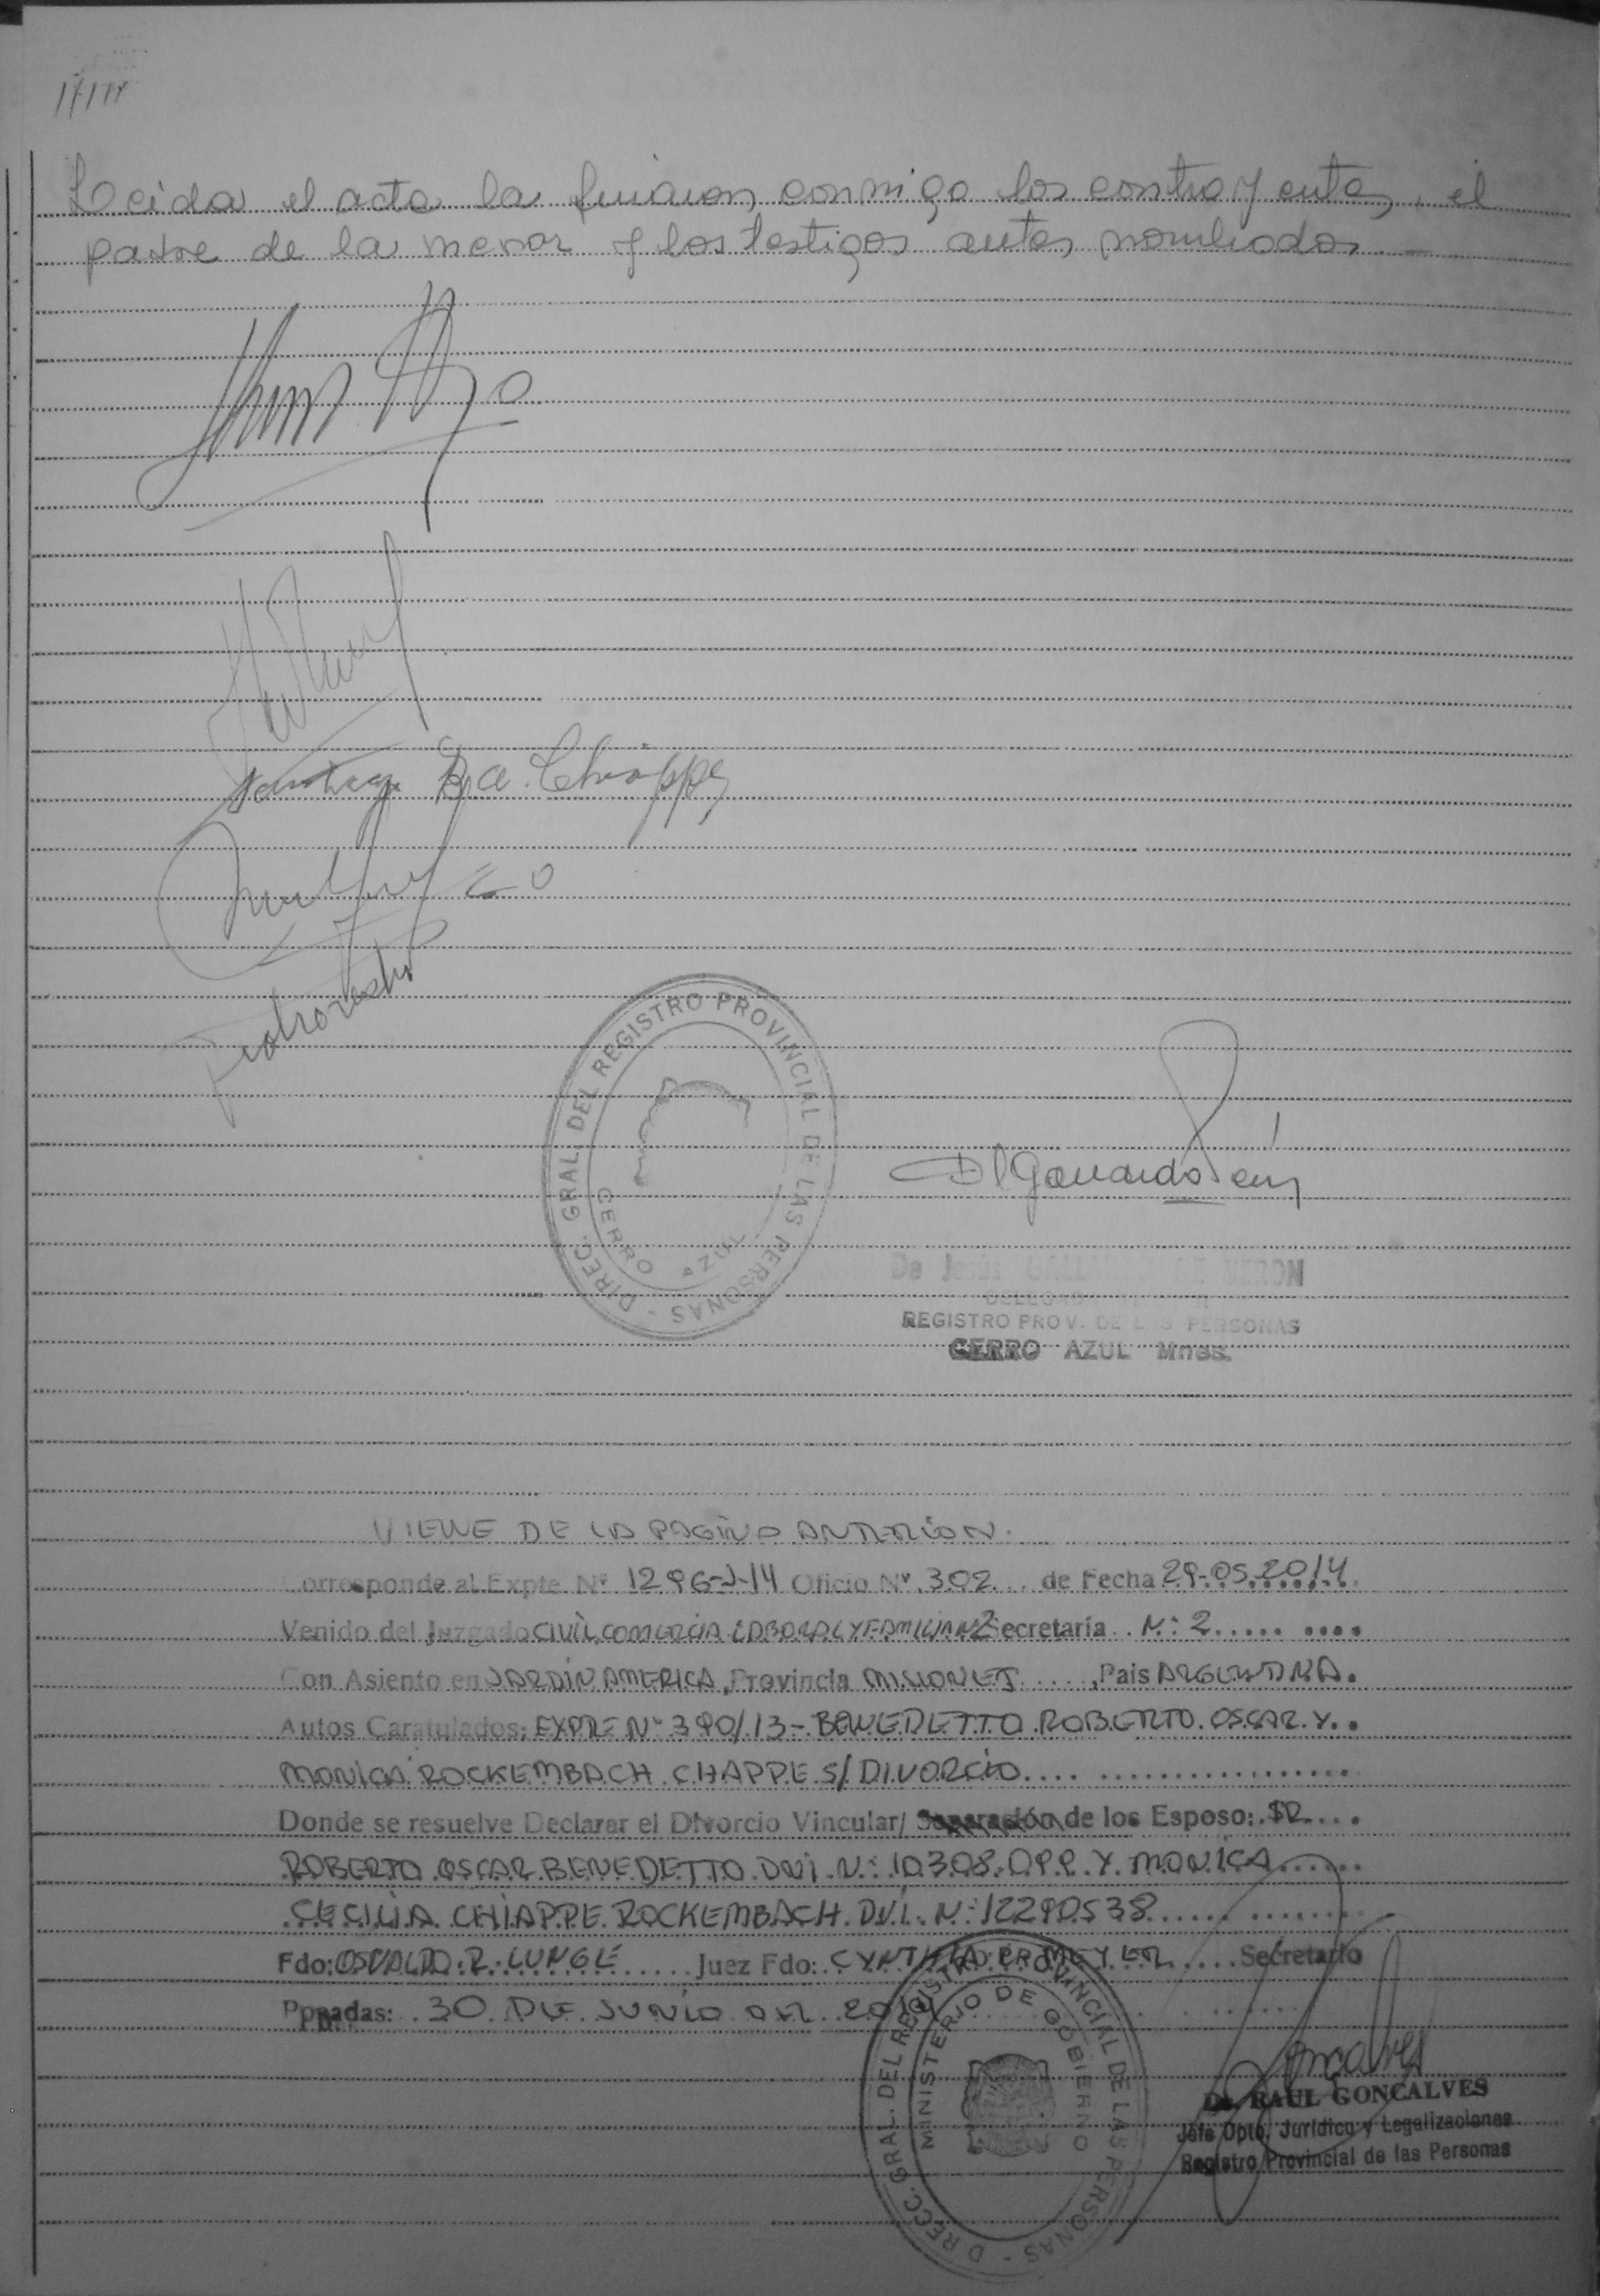 Leida el acta la firman conmigo los contrayentes, el
padre de la menor y los testigos antes nombrados.-
Chiappe
DIREC. GRAL. DEL REGISTRO PROVINCIAL DE LAS PERSONAS -
CERRO AZUL
De Jesús
REGISTRO PROV. DE LAS PERSONAS
CERRO AZUL Mnes.
VIENE DE LA PAGINA ANTERIOR.
Corresponde al Expte Nº 1296-J-14 Oficio Nº 302 de Fecha 29-05-2014
Venido del Juzgado CIVIL COMERCIA LABORAL Y FAMILIA Nº2 Secretaría Nº: 2
Con Asiento en JARDIN AMERICA, Provincia MISIONES, País ARGENTINA.
Autos Caratulados: EXPTE Nº 390/13- BENEDETTO ROBERTO OSCAR Y
MONICA ROCKEMBACH CHAPPE S/ DIVORCIO
Donde se resuelve Declarar el Divorcio Vincular/ Separación de los Esposo: SR
ROBERTO OSCAR BENEDETTO DNI. N: 10.308.099 Y MONICA
CECILIA CHIAPPE ROCKEMBACH D.N.I. N: 12290538
Fdo: OSVALDO R. LUNGE Juez Fdo: CYNTHIA MEYER Secretario
Posadas: 30 DE JUNIO DEL 2014
DIREC. GRAL. DEL REGISTRO PROVINCIAL DE LAS PERSONAS -
MINISTERIO DE GOBIERNO
Dr. RAUL GONCALVES
Jefe Dpto. Jurídico y Legalizaciones
Registro Provincial de las Personas